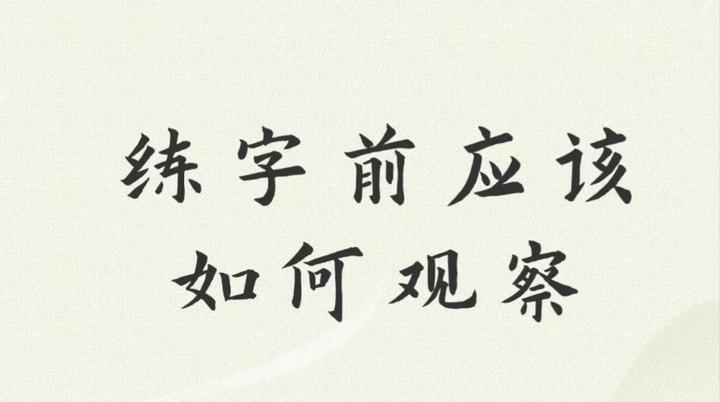 练字前应该
如何观察